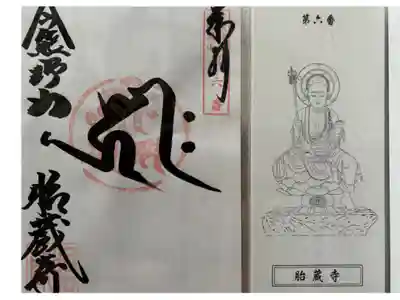 第六番
胎蔵寺
奉拝
今熊野山 胎蔵寺